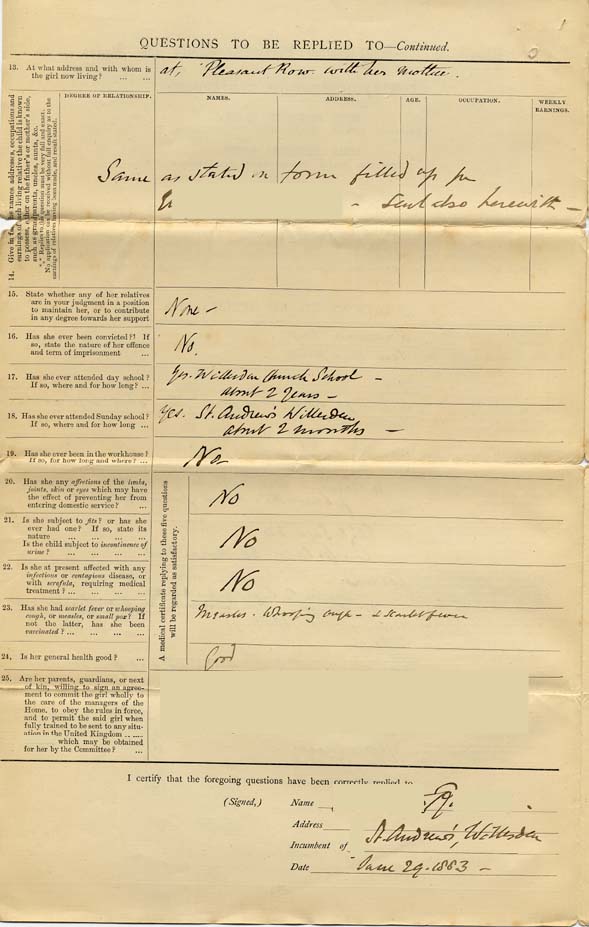 QUESTIONS TO BE REPLIED TO—Continued.
13. At what address and with whom is
the girl now living? ... ...
at, Pleasant Row. with her mother.
14. Give in full the names, addresses, occupations and
earnings of each living relative the child is known
to possess, either on the father's or mother's side,
such as grandparents, uncles, aunts, &c.
*** Replies to this question must be very full and exact.
No application can be received without full enquiry as to the
earnings of relatives having been made, and result stated.
DEGREE OF RELATIONSHIP.
NAMES.
ADDRESS.
AGE.
OCCUPATION.
WEEKLY
EARNINGS.
Same as stated in form filled up for
- Sent also herewith -
15. State whether any of her relatives
are in your judgment in a position
to maintain her, or to contribute
in any degree towards her support
None -
16. Has she ever been convicted? If
so, state the nature of her offence
and term of imprisonment ...
No.
17. Has she ever attended day school?
If so, where and for how long? ...
Yes. Willesden Church School -
about 2 Years -
18. Has she ever attended Sunday school?
If so, where and for how long ...
Yes. St. Andrew's Willesden
about 2 months -
19. Has she ever been in the workhouse?
If so, for how long and where? ...
No
A medical certificate replying to these five questions
will be regarded as satisfactory.
20. Has she any affections of the limbs,
joints, skin or eyes which may have
the effect of preventing her from
entering domestic service? ...
No
21. Is she subject to fits? or has she
ever had one? If so, state its
nature ... ... ... ...
Is the child subject to incontinence of
urine? ... ... ... ...
No
22. Is she at present affected with any
infectious or contagious disease, or
with scrofula, requiring medical
treatment? ... ... ... ...
No
23. Has she had scarlet fever or whooping
cough, or measles, or small pox? If
not the latter, has she been
vaccinated? ... ... ... ...
Measles - Whooping Cough - & Scarlet fever
24. Is her general health good? ...
Good
25. Are her parents, guardians, or next
of kin, willing to sign an agree-
ment to commit the girl wholly to
the care of the managers of the
Home, to obey the rules in force,
and to permit the said girl when
fully trained to be sent to any situ-
ation in the United Kingdom ......
which may be obtained
for her by the Committee? ...
I certify that the foregoing questions have been correctly replied to
(Signed,) Name
Address
Incumbent of St. Andrew's, Willesden
Date June 29. 1883 -